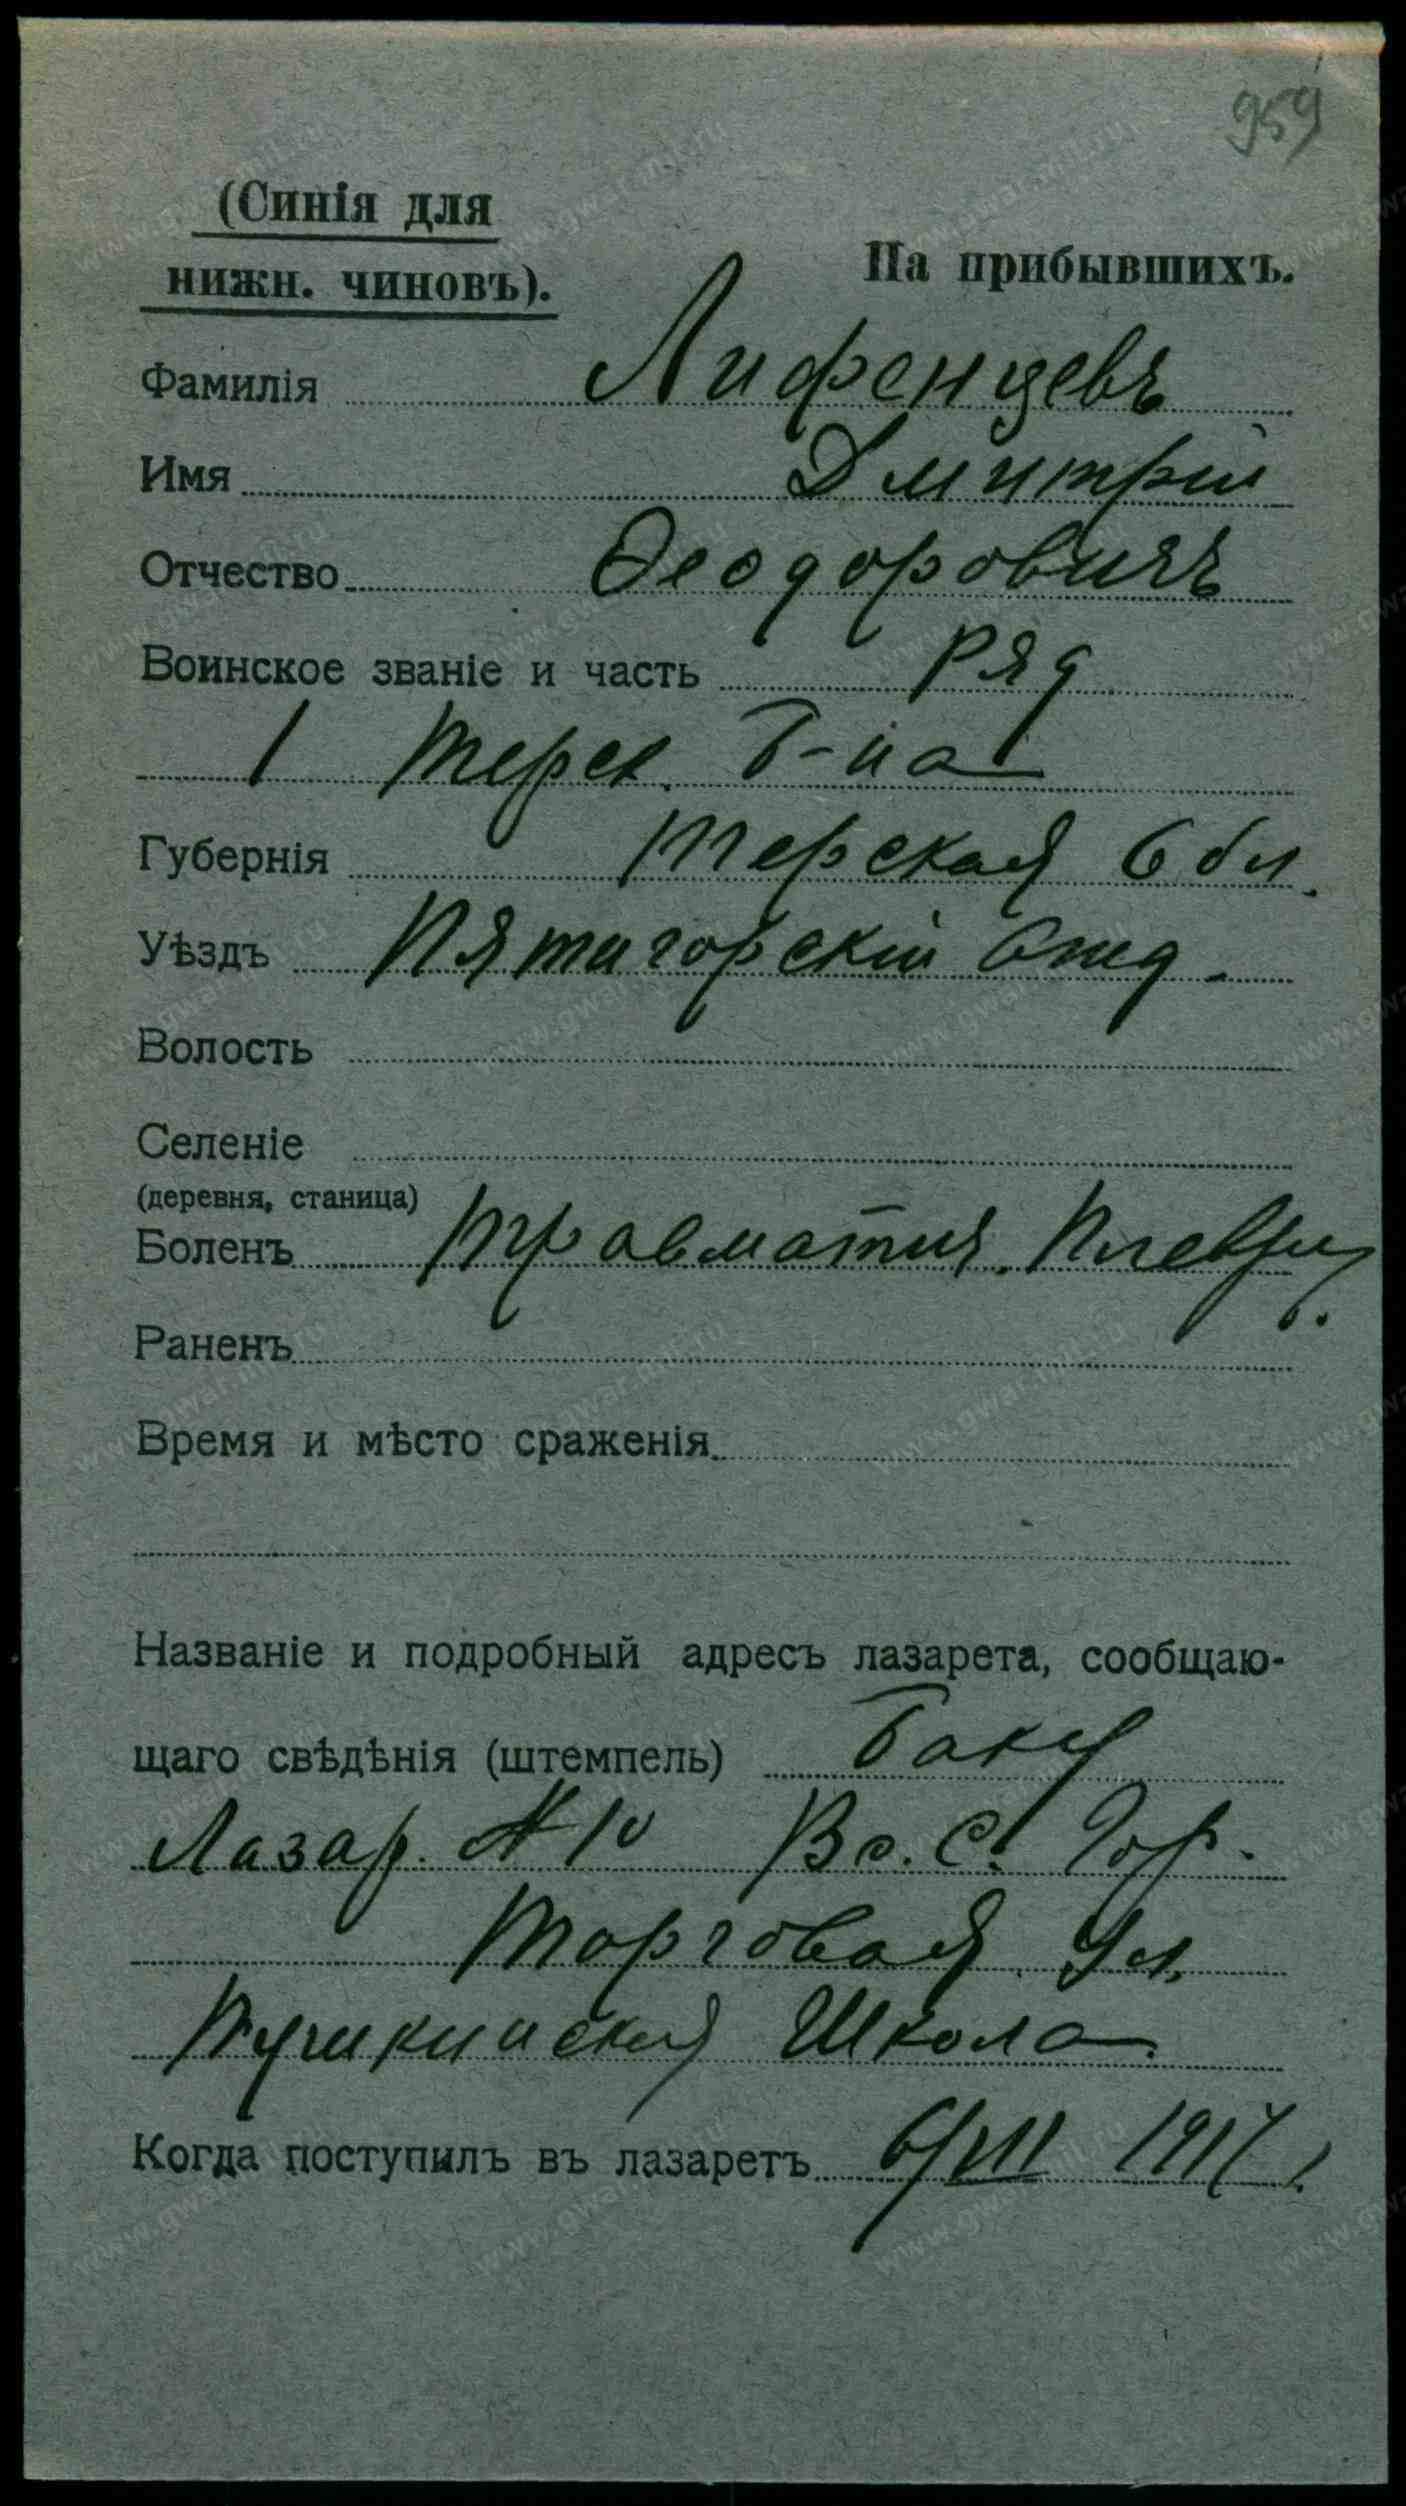 959
(Синія для
нижн. чиновъ).
На прибывшихъ.
Фамилія Лифенцевъ
Имя Дмитрій
Отчество Ѳеодоровичъ
Воинское званіе и часть Ряд
1 Терск. Б-на
Губернія Терская Обл.
Уѣздъ Пятигорскій Отд.
Волость
Селеніе
(деревня, станица)
Боленъ Травматич. Плеврит.
Раненъ
Время и мѣсто сраженія
Названіе и подробный адресъ лазарета, сообщаю-
щаго свѣдѣнія (штемпель) Баку
Лазар. № 10 Вс. С. Гор.
Торговая Ул.
Пушкинская Школа.
Когда поступилъ въ лазаретъ 6/VII 1917 г.